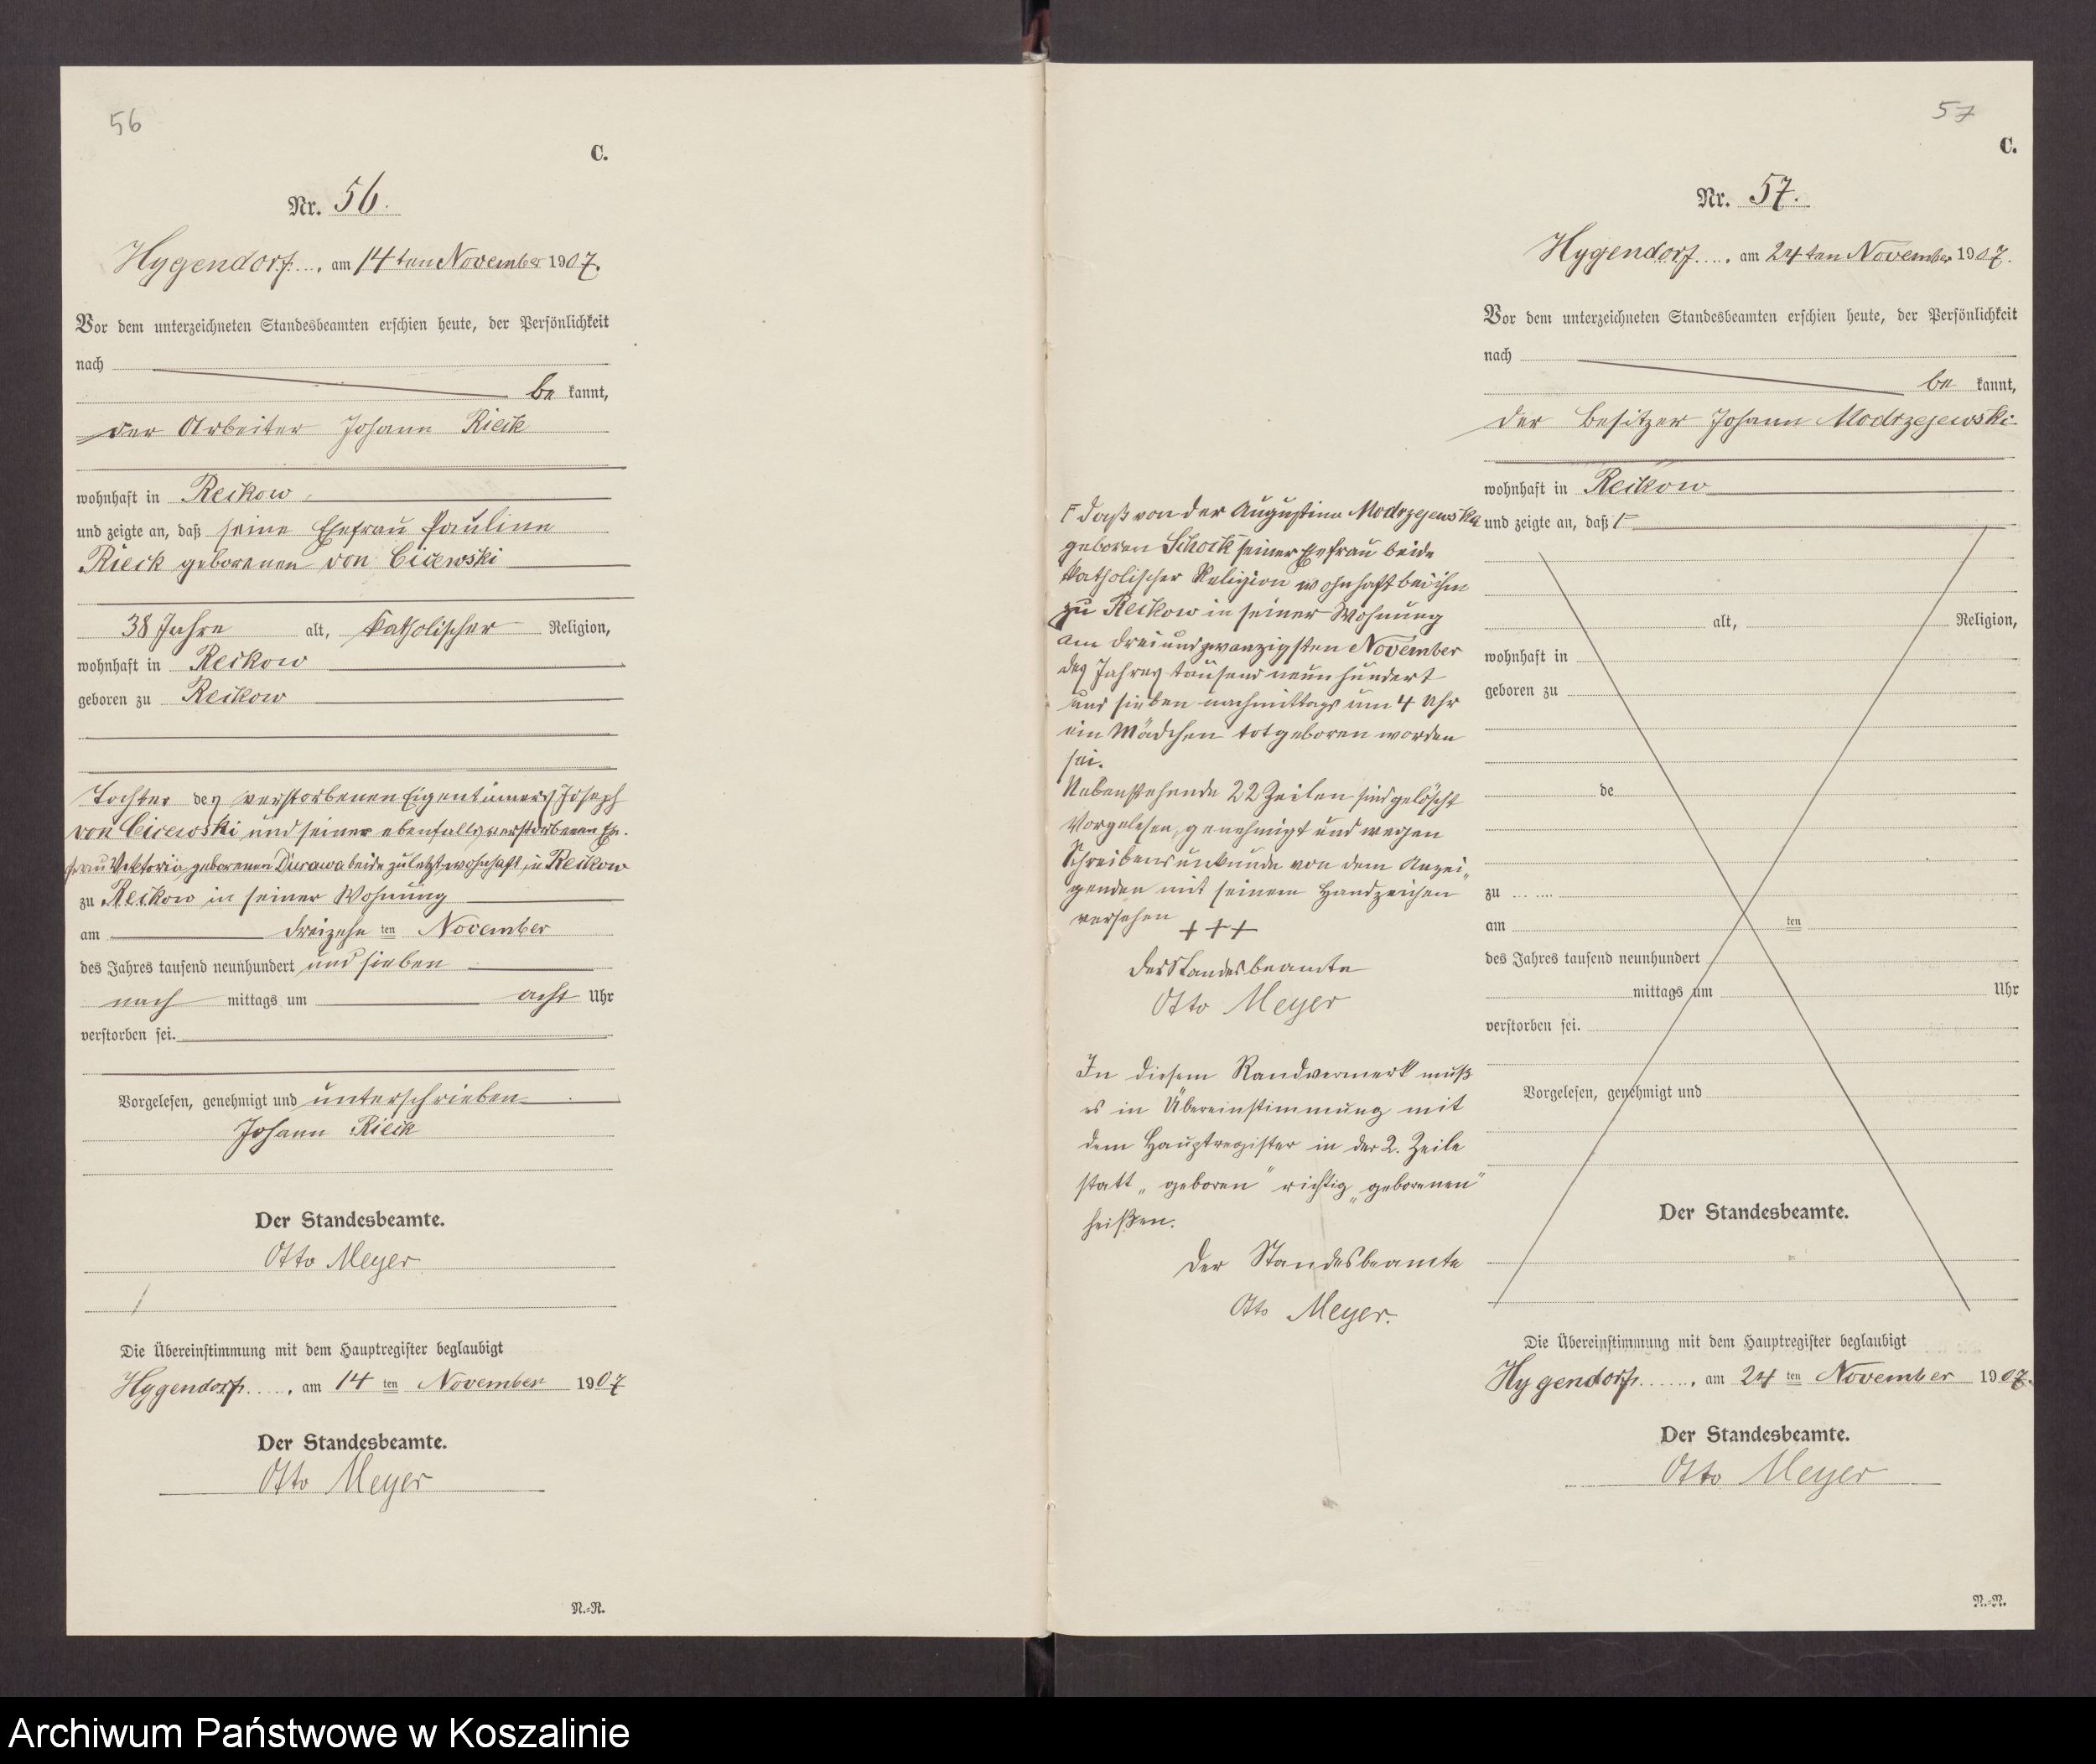 56
C.
Nr. 56.
Hygendorf...., am 14ten November 1907.
Vor dem unterzeichneten Standesbeamten erschien heute, der Persönlichkeit
nach
be kannt,
der Arbeiter Johann Rieck
wohnhaft in Reckow
und zeigte an, daß seine Ehefrau Pauline
Rieck geborenen von Cicewski
38 Jahre alt, katholischer Religion,
wohnhaft in Reckow
geboren zu Reckow
Tochter des verstorbenen Eigentümers Joseph
von Cicewski und seiner ebenfalls verstorbenen Ehe-
frau Viktoria geborenen Durawa beide zuletzt wohnhaft in Reckow
zu Reckow in seiner Wohnung
am dreizehn ten November
des Jahres tausend neunhundert und sieben
nach mittags um acht Uhr
verstorben sei.
Vorgelesen, genehmigt und unterschrieben
Johann Rieck
Der Standesbeamte.
Otto Meyer
Die Übereinstimmung mit dem Hauptregister beglaubigt
Hygendorf....., am 14 ten November 1907
Der Standesbeamte.
Otto Meyer
N.-R.
57
C.
Nr. 57.
Hygendorf...., am 24ten November 1907.
Vor dem unterzeichneten Standesbeamten erschien heute, der Persönlichkeit
nach
be kannt,
der Besitzer Johann Modrzejewski
wohnhaft in Reckow
und zeigte an, daß F
alt, Religion,
wohnhaft in
geboren zu
de
zu
am ten
des Jahres tausend neunhundert
mittags um Uhr
verstorben sei.
Vorgelesen, genehmigt und
Der Standesbeamte.
F daß von der Augustine Modrzejewska
geboren Schock seiner Ehefrau beide
katholischer Religion wohnhaft bei ihm
zu Reckow in seiner Wohnung
am dreiundzwanzigsten November
des Jahres tausend neunhundert
und sieben nachmittags um 4 Uhr
ein Mädchen totgeboren worden
sei.
Nebenstehende 22 Zeilen sind gelöscht
Vorgelesen, genehmigt und wegen
Schreibensunkunde von dem Anzei-
genden mit seinem Handzeichen
versehen +++
Der Standesbeamte
Otto Meyer
In diesem Randvermerk muß
es in Übereinstimmung mit
dem Hauptregister in der 2. Zeile
statt „geboren" richtig „geborenen"
heißen.
Der Standesbeamte
Otto Meyer.
Die Übereinstimmung mit dem Hauptregister beglaubigt
Hygendorf......, am 24 ten November 1907.
Der Standesbeamte.
Otto Meyer
N.-R.
Archiwum Państwowe w Koszalinie